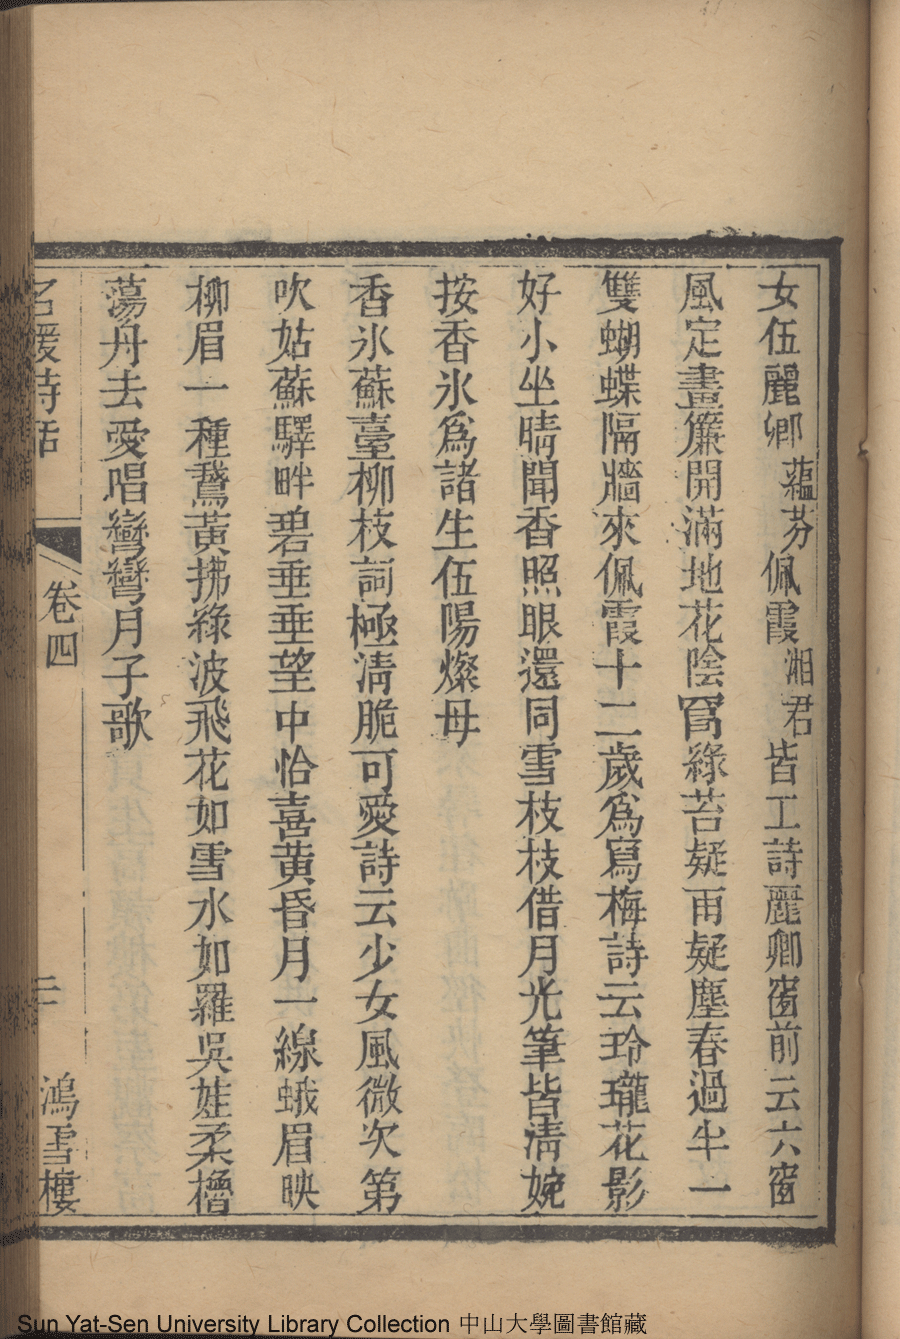 女伍麗卿蘊芬佩霞湘君皆工詩麗卿窗前云六窗
風定畫簾開滿地花陰罥綠苔疑雨疑塵春過半一
雙蝴蝶隔牆來佩霞十二歲爲寫梅詩云玲瓏花影
好小坐晴聞香照眼還同雪枝枝借月光筆皆清婉
按香氷爲諸生伍陽燦母
香氷蘇臺柳枝詞極清脆可愛詩云少女風微次第
吹姑蘇驛畔碧垂垂望中恰喜黃昏月一線蛾眉映
柳眉一種鵞黃拂綠波飛花如雪水如羅吳娃柔櫓
蕩舟去愛唱彎彎月子歌
名媛詩話
卷四
二
鴻雪樓
Sun Yat-Sen University Library Collection 中山大學圖書館藏